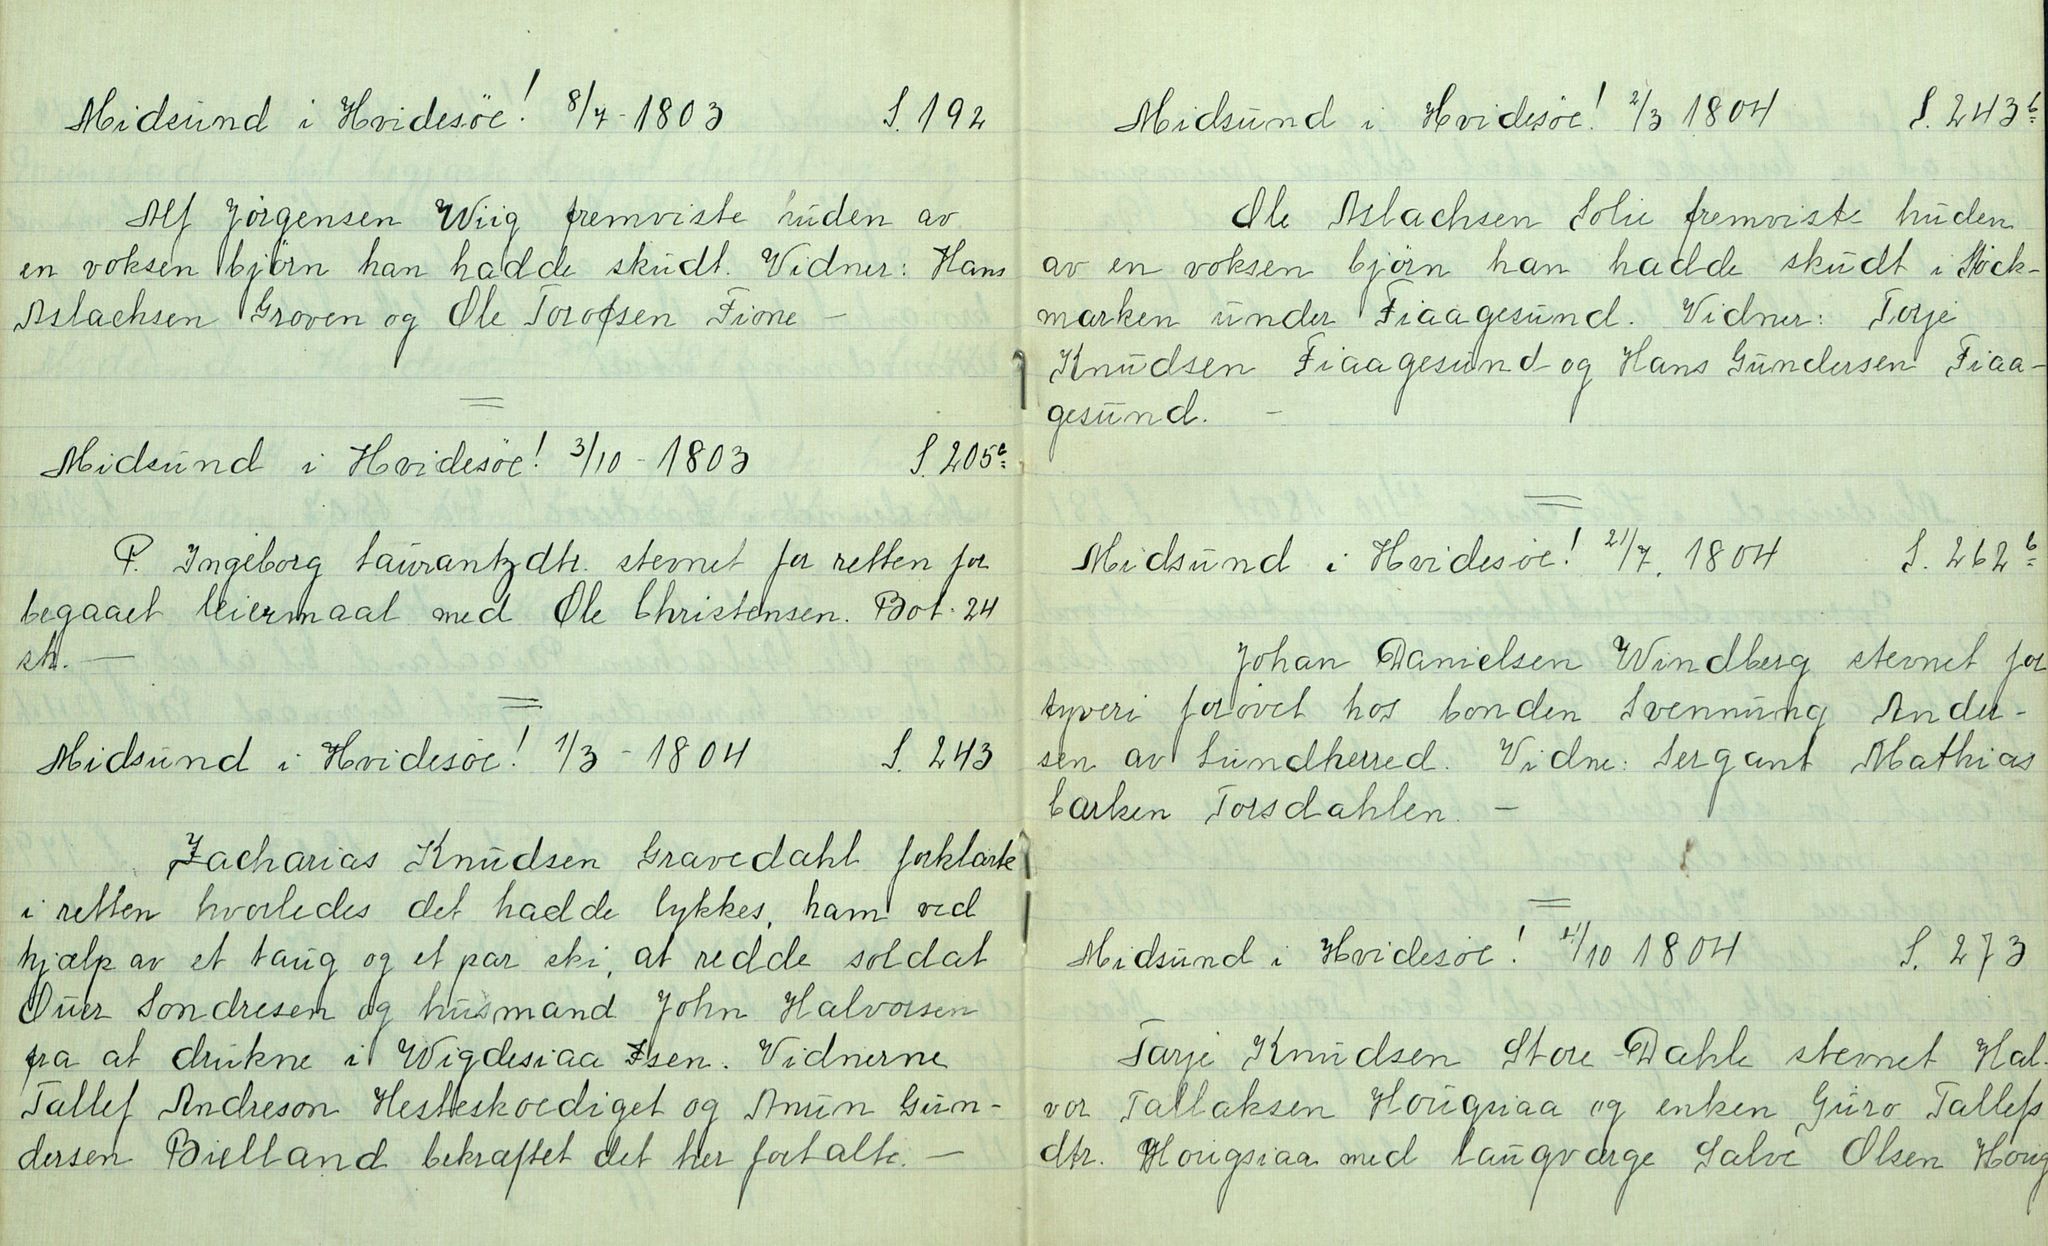 Midsund i Hvidesöe! 8/7 - 1803 S. 192
Alf Jörgensen Wiig fremviste huden av
en voksen björn han hadde skudt. Vidner: Hans
Aslachsen Groven og Ole Torofsen Fione -
Midsund i Hvidesöe! 3/10 - 1803 S. 205b
P. Ingeborg Laurantzdtr. stevnet for retten for
begaaet leiermaal med Ole Christensen. Bot. 24
sk. -
Midsund i Hvidesöe! 1/3 - 1804 S. 243
Zacharias Knudsen Gravedahl forklarte
i retten hvorledes det hadde lykkes, ham ved
hjælp av et taug og et par ski, at redde soldat
Ouer Sondresen og husmand John Halvorsen
fra at drukne i Wigdesiaa Isen. Vidnerne
Tallef Andreson Hesteskoediget og Anun Gun-
dersen Bielland bekræftet det her fortalte. -
Midsund i Hvidesöe! 2/3 1804 S. 243b
Ole Aslachsen Solie fremviste huden
av en voksen björn han hadde skudt i Höck-
marken under Fiaagesund. Vidner: Torje
Knudsen Fiaagesund og Hans Gundersen Fiaa-
gesund. -
Midsund i Hvidesöe! 21/7. 1804 S. 262b
Johan Danielsen Windberg stevnet for
tyveri forövet hos bonden Svennung Ander-
sen av Sundherred. Vidne: Sergant Mathias
barken Torsdahlen. -
Midsund i Hvidesöe! 4/10 1804 S. 273
Tarje Knudsen Store-Dahle stevnet Hal-
vor Tallaksen Hougsiaa og enken Guro Tallefs
dtr. Hougsiaa med laugværge Salve Olsen Houg